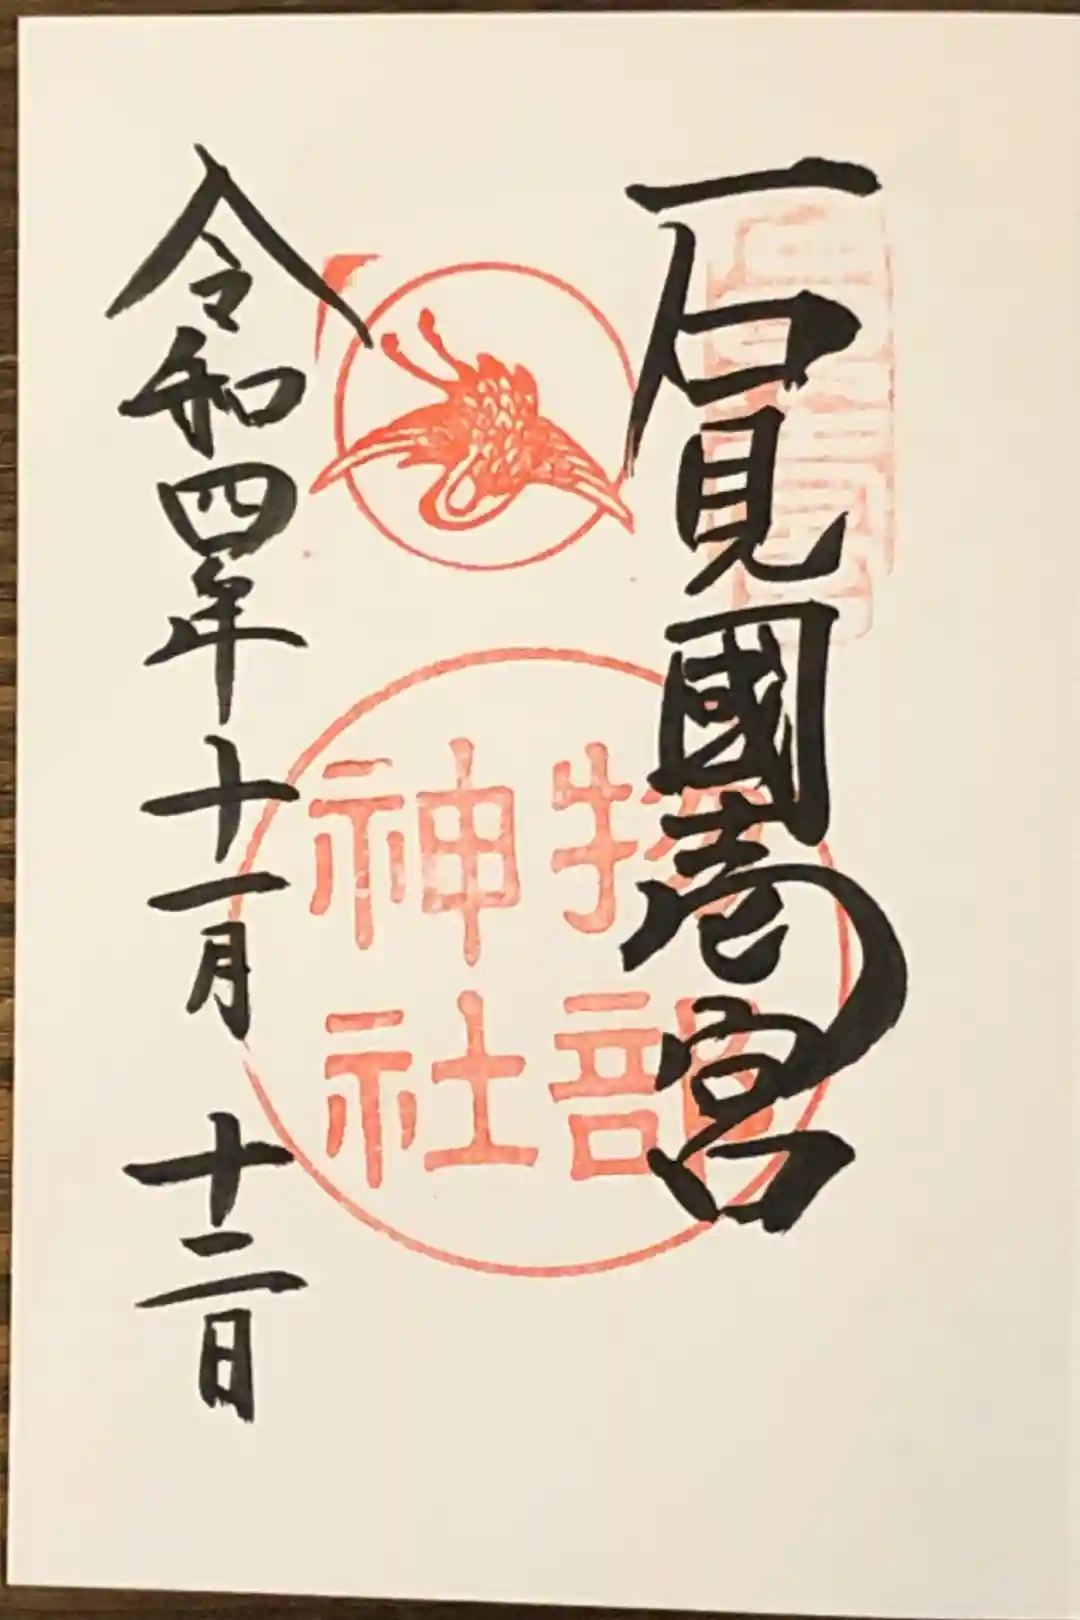 石見國壱宮
物部
神社
令和四年十一月十二日